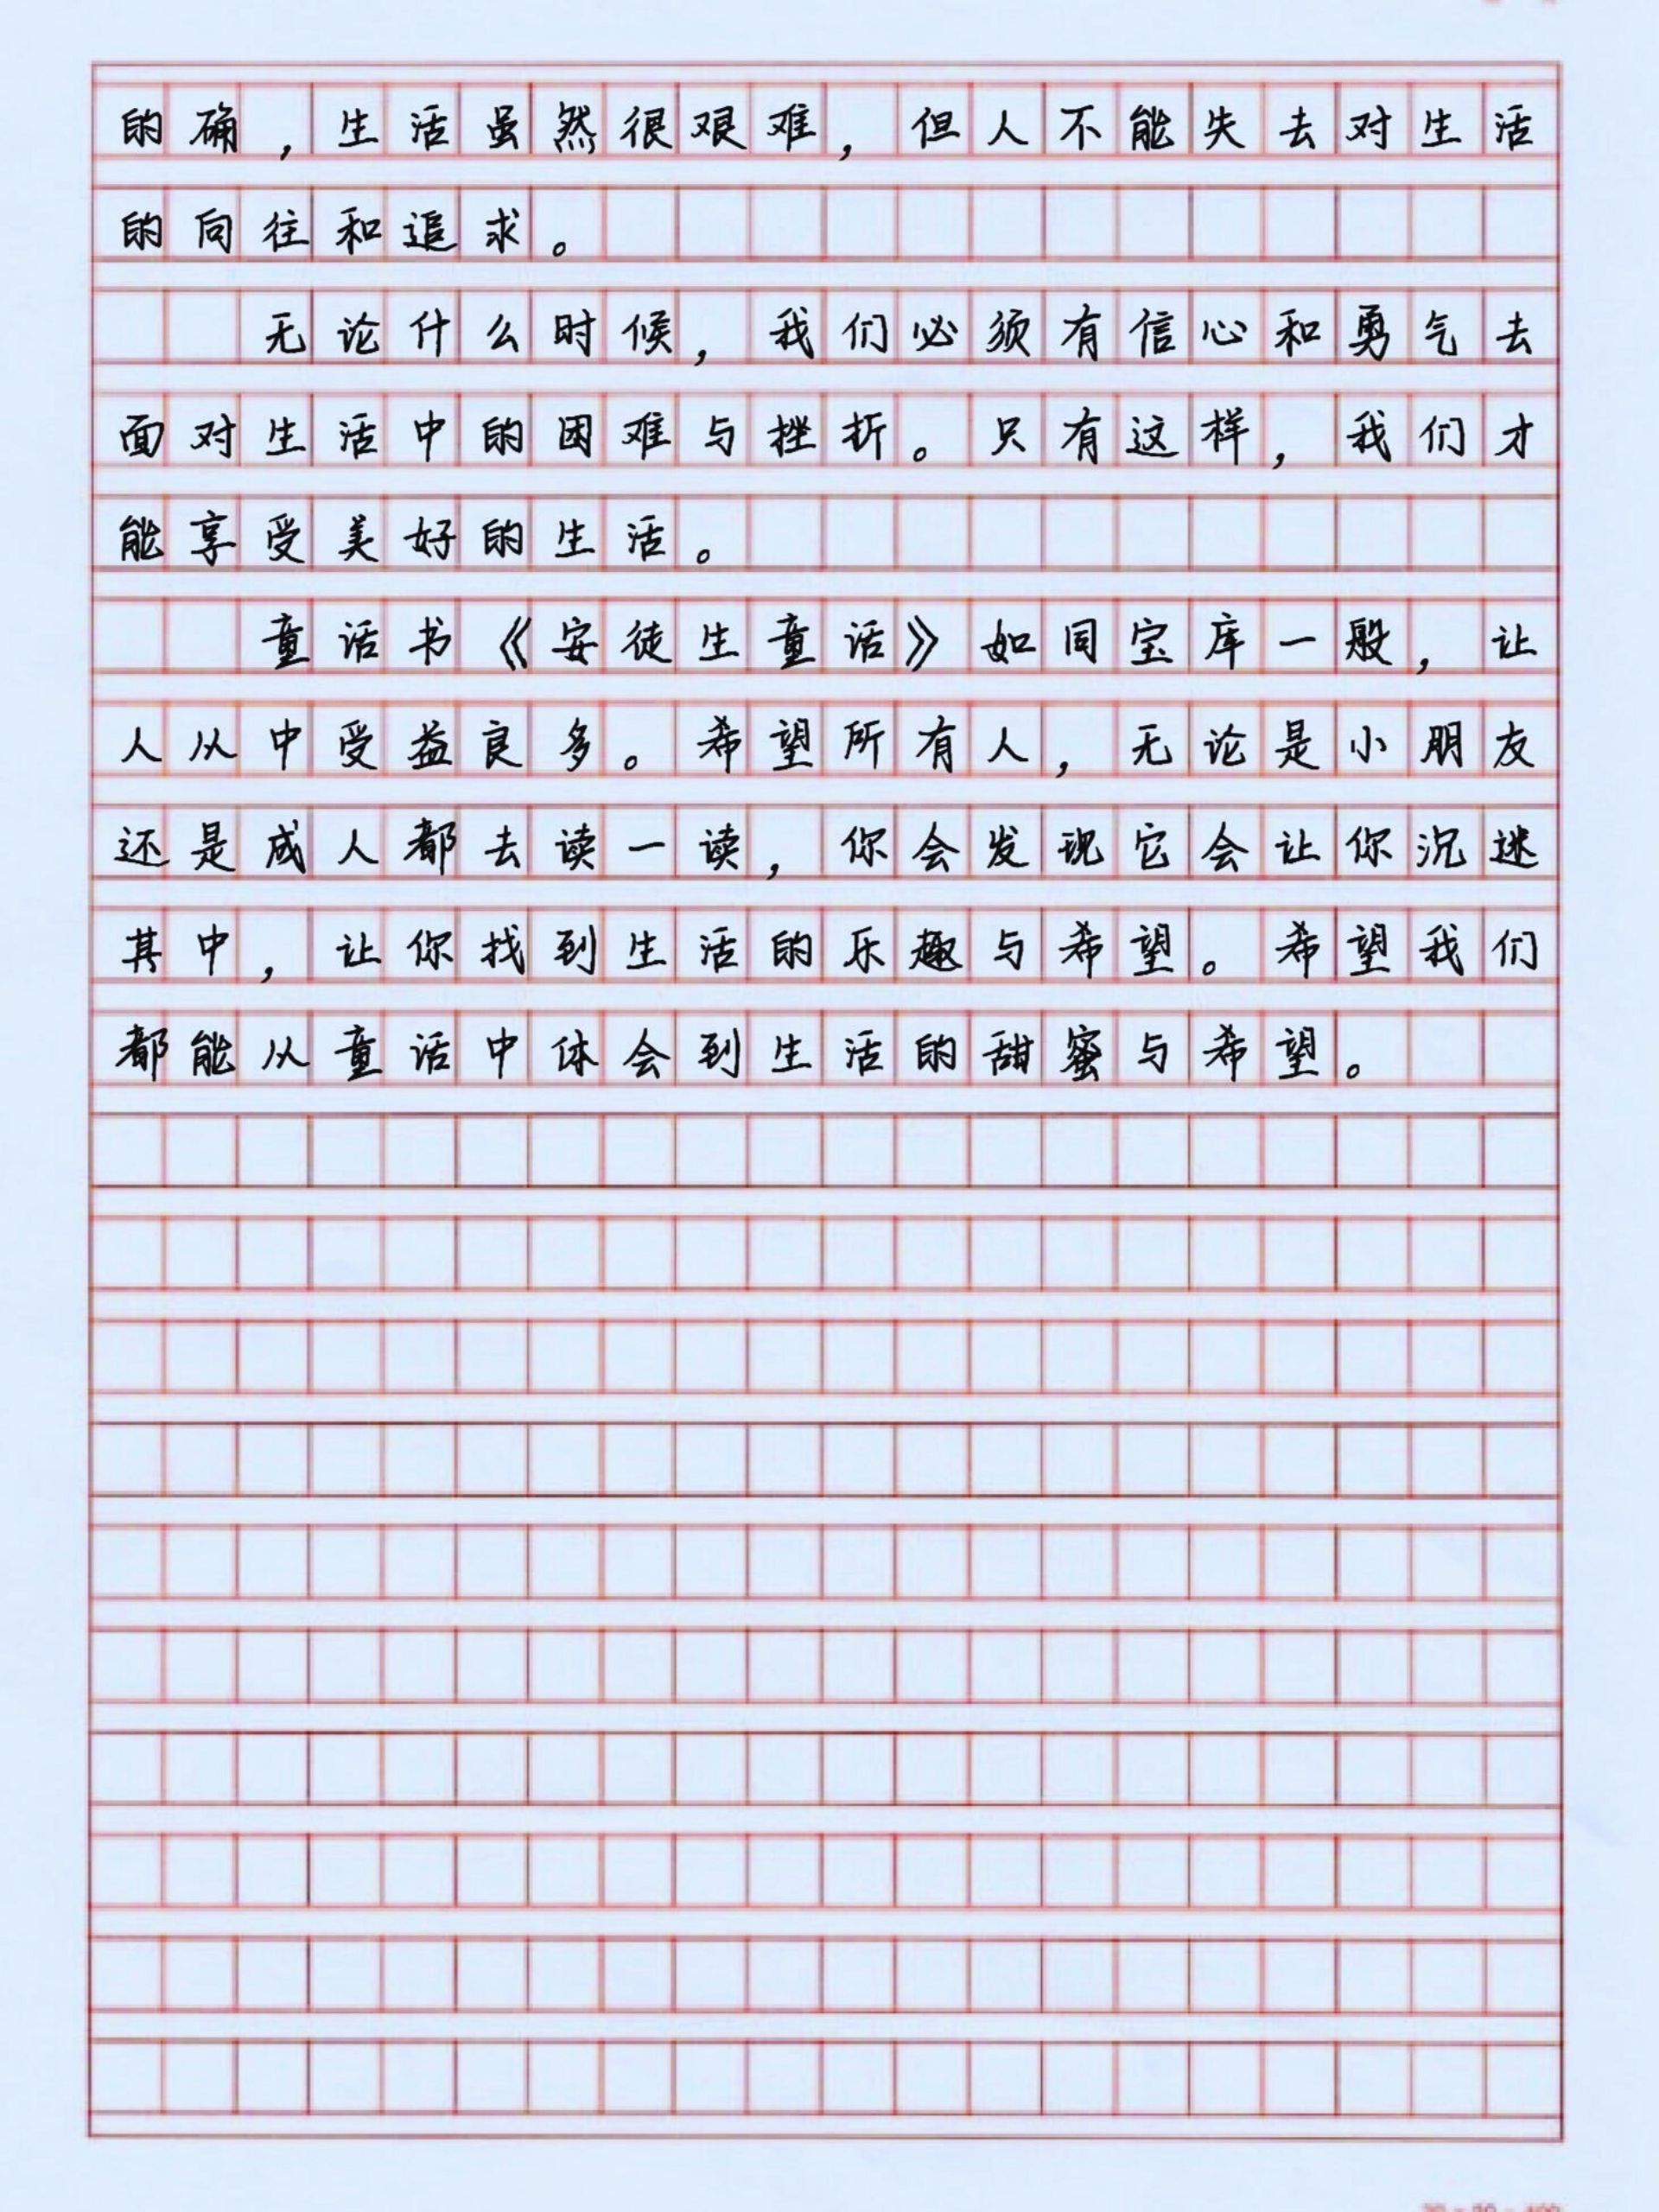 的确，生活虽然很艰难，但人不能失去对生活
的向往和追求。
无论什么时候，我们必须有信心和勇气去
面对生活中的困难与挫折。只有这样，我们才
能享受美好的生活。
童话书《安徒生童话》如同宝库一般，让
人从中受益良多。希望所有人，无论是小朋友
还是成人都去读一读，你会发现它会让你沉迷
其中，让你找到生活的乐趣与希望。希望我们
都能从童话中体会到生活的甜蜜与希望。